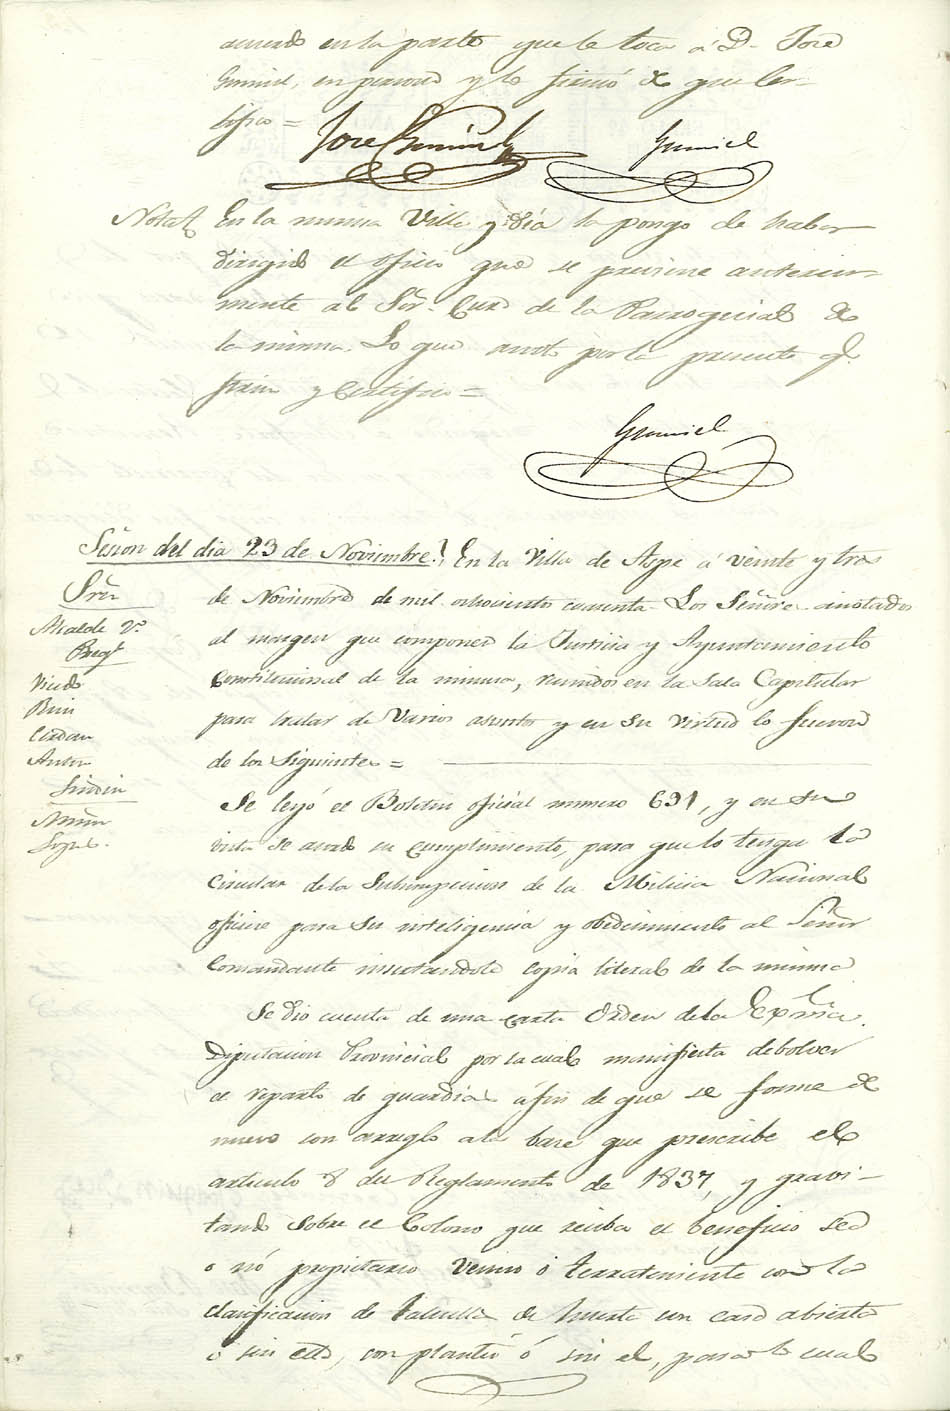 acuerdo en la parte que le toca á D. José
Gumiel, en persona y lo firmó de que cer-
tifico =
José Gumiel
Gumiel
Nota
En la misma Villa y dia la pongo de haber
dirigido el oficio que se previene anterior-
mente al Sõr. Cura de la Parroquial de
la misma. Lo que anoto por la presente q.
firmo y Certifico =
Gumiel
Sesion del dia 23 de Noviembre.
En la Villa de Aspe á veinte y tres
de Noviembre de mil ochocientos cuarenta Los Señores anotados
al margen que componen la Justicia y Ayuntamiento
Constitucional de la misma, reunidos en la Sala Capitular
para tratar de Varios asuntos y en su virtud lo fueron
de los Siguientes =
Sres
Alcalde 2º
Regs
Vicedo
Cerdan
Anton
Sindico
Se leyó el Boletin oficial numero 691, y en su
vista se acordó su cumplimiento, para que lo tenga la
Circular de la Subinspeccion de la Milicia Nacional
oficiese para su inteligencia y obedecimiento al Señor
Comandante insertandole copia literal de la misma
Se dio cuenta de una carta Orden de la Exma
Diputacion Provincial por la cual manifiesta debolver
el reparto de guardias á fin de que se forme de
nuevo con arreglo a la base que prescribe el
articulo 8 del Reglamento de 1837, y gravi-
tando sobre el Colono que reciba el beneficio sea
o nó propietario Vecino ó terrateniente con la
clasificacion de tahulla de huerta con casa abierta
ó sin ella, con plantio ó sin el, para lo cual